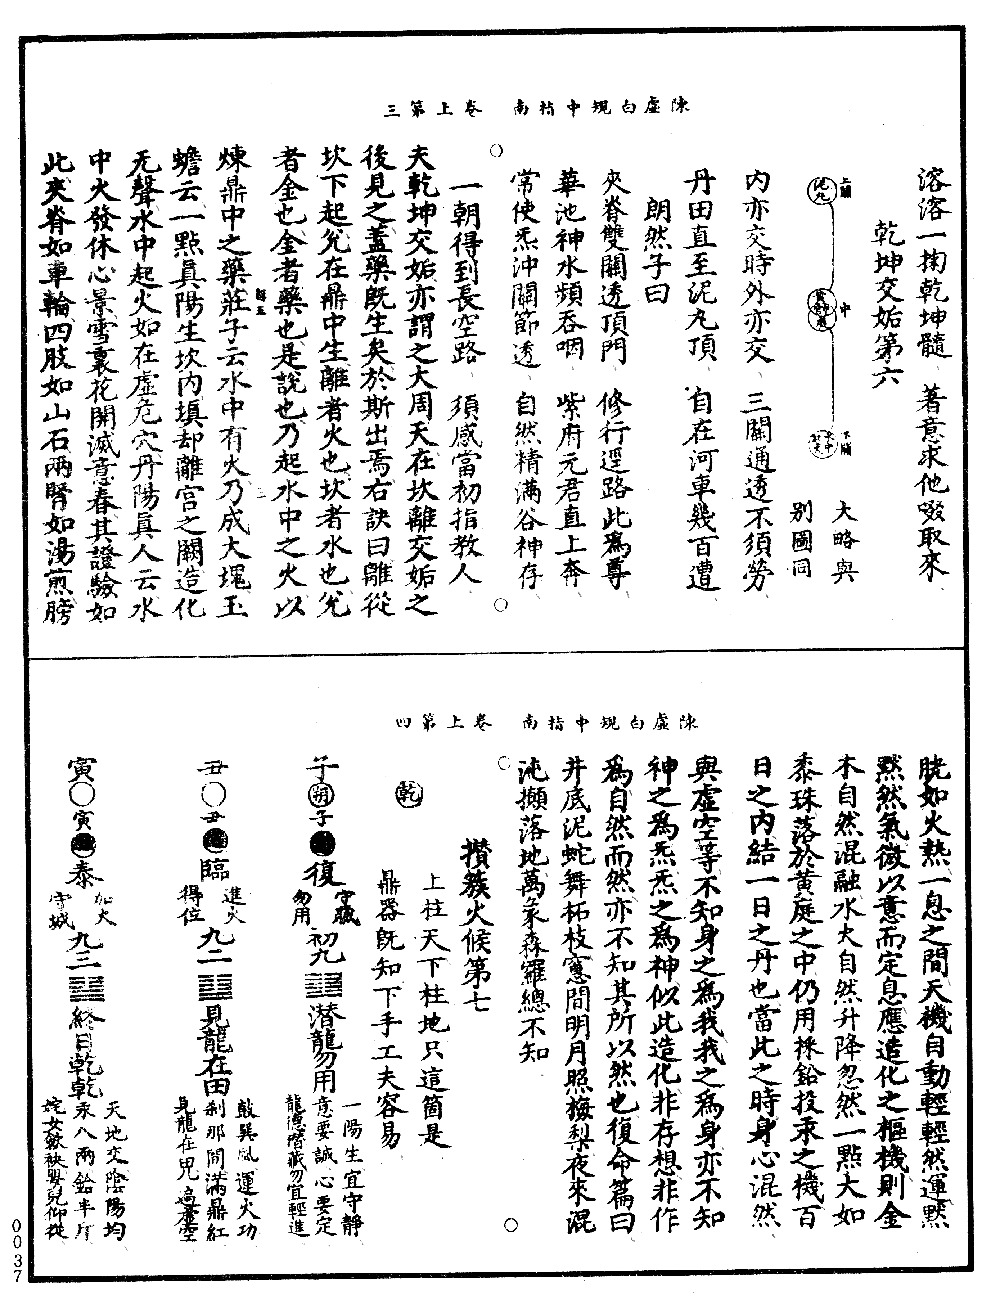 陳虛白規中指南　卷上第三
溶溶一掬乾坤髓　著意求他啜取來
乾坤交姤第六
上關　泥丸
中　黃
下關
大略與
別圖同
內亦交時外亦交　三關通透不須勞
丹田直至泥丸頂　自在河車幾百遭
朗然子曰
夾脊雙關透頂門　修行逕路此為尊
華池神水頻吞咽　紫府元君直上奔
常使炁沖關節透　自然精滿谷神存
一朝得到長空路　須感當初指教人
夫乾坤交姤亦謂之大周天在坎離交姤之
後見之蓋藥旣生矣於斯出焉右訣曰離從
坎下起兊在鼎中生離者火也坎者水也兊
者金也金者藥也是說也乃起水中之火以
煉鼎中之藥莊子云水中有火乃成大塊玉
蟾云一點眞陽生坎內塡却離宮之闕造化
无聲水中起火如在虛危穴丹陽眞人云水
中火發休心景雪裏花開滅意春其證驗如
此夾脊如車輪四肢如山石兩腎如湯煎膀
陳虛白規中指南　卷上第四
胱如火熱一息之間天機自動輕輕然運默
默然氣微以意而定息應造化之樞機則金
木自然混融水火自然升降忽然一點大如
黍珠落於黃庭之中仍用採鉛投汞之機百
日之內結一日之丹也當此之時身心混然
與虛空等不知身之為我我之為身亦不知
神之為炁炁之為神似此造化非存想非作
為自然而然亦不知其所以然也復命篇曰
井底泥蛇舞柘枝窻間明月照梅梨夜來混
沌攧落地萬象森羅總不知
攅簇火候第七
上柱天下柱地只這箇是
乾
鼎器旣知下手工夫容易
子　朔　子　復　守城　勿用　初九　䷗　潜龍勿用　一陽生宜守靜　意要誠心要定　龍德潛藏勿宜輕進
丑　丑　臨　進火　得位　九二　䷒　見龍在田　鼓巽風運火功　剎那間滿鼎紅　見龍在田
寅　寅　泰　加火　守城　九三　䷊　終日乾乾　天地交陰陽均　汞八兩鉛半斤　姹女斂袂嬰兒仰從
0037